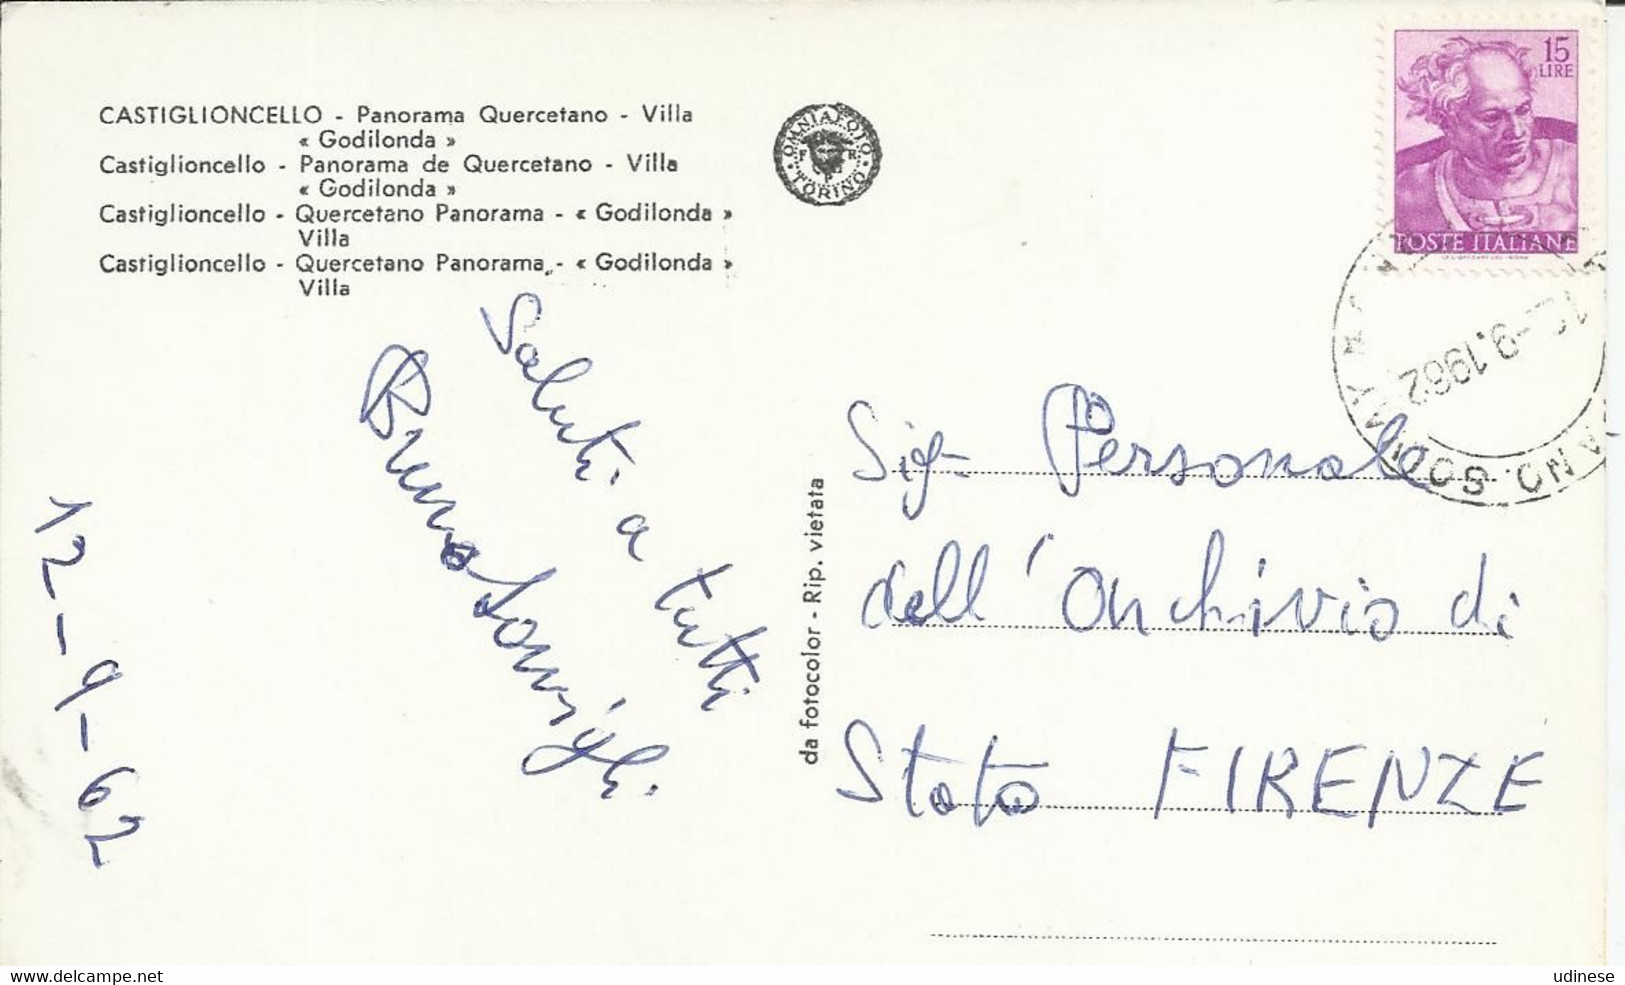 CASTIGLIONCELLO - Panorama Quercetano - Villa
« Godilonda »
Castiglioncello - Panorama de Quercetano - Villa
« Godilonda »
Castiglioncello - Quercetano Panorama - « Godilonda »
Villa
Castiglioncello - Quercetano Panorama - « Godilonda »
Villa
OMNIAFOTO
F R
TORINO
15
LIRE
POSTE ITALIANE
-9.1962
Saluti a tutti
Bruno
12-9-62
da fotocolor - Rip. vietata
Sig. Personale
dell'Archivio di
Stato FIRENZE
udinese